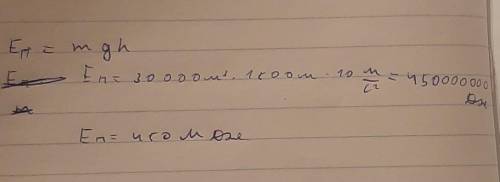 Eп = mgh
Eп = 30000м³ · 1500м · 10 м/с² = 450000000 Дж
Eп = 450 МДж